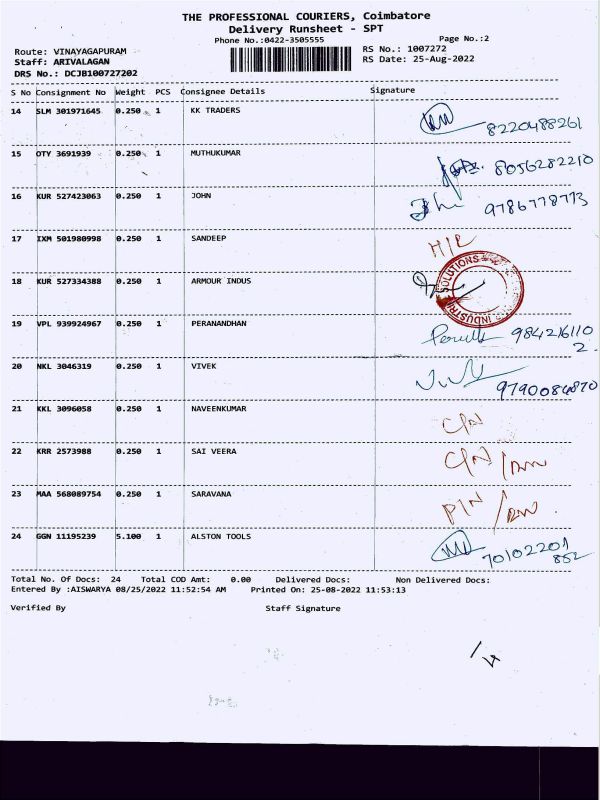 THE PROFESSIONAL COURIERS, Coimbatore
Delivery Runsheet - SPT
Phone No.:0422-3505555 Page No.:2
Route: VINAYAGAPURAM RS No.: 1007272
Staff: ARIVALAGAN RS Date: 25-Aug-2022
DRS No.: DCJB100727202
S No Consignment No Weight PCS Consignee Details Signature
14 SLM 301971645 0.250 1 KK TRADERS
8220488261
15 OTY 3691939 0.250 1 MUTHUKUMAR 8056282210
16 KUR 527423063 0.250 1 JOHN 9786778773
17 IXM 501980998 0.250 1 SANDEEP
18 KUR 527334388 0.250 1 ARMOUR INDUS
SOLUTIONS
19 VPL 939924967 0.250 1 PERANANDHAN 984216110
2.
20 NKL 3046319 0.250 1 VIVEK
9790084870
21 KKL 3096058 0.250 1 NAVEENKUMAR
22 KRR 2573988 0.250 1 SAI VEERA
23 MAA 568089754 0.250 1 SARAVANA
24 GGN 11195239 5.100 1 ALSTON TOOLS 70102201
852
Total No. Of Docs: 24 Total COD Amt: 0.00 Delivered Docs: Non Delivered Docs:
Entered By :AISWARYA 08/25/2022 11:52:54 AM Printed On: 25-08-2022 11:53:13
Verified By Staff Signature